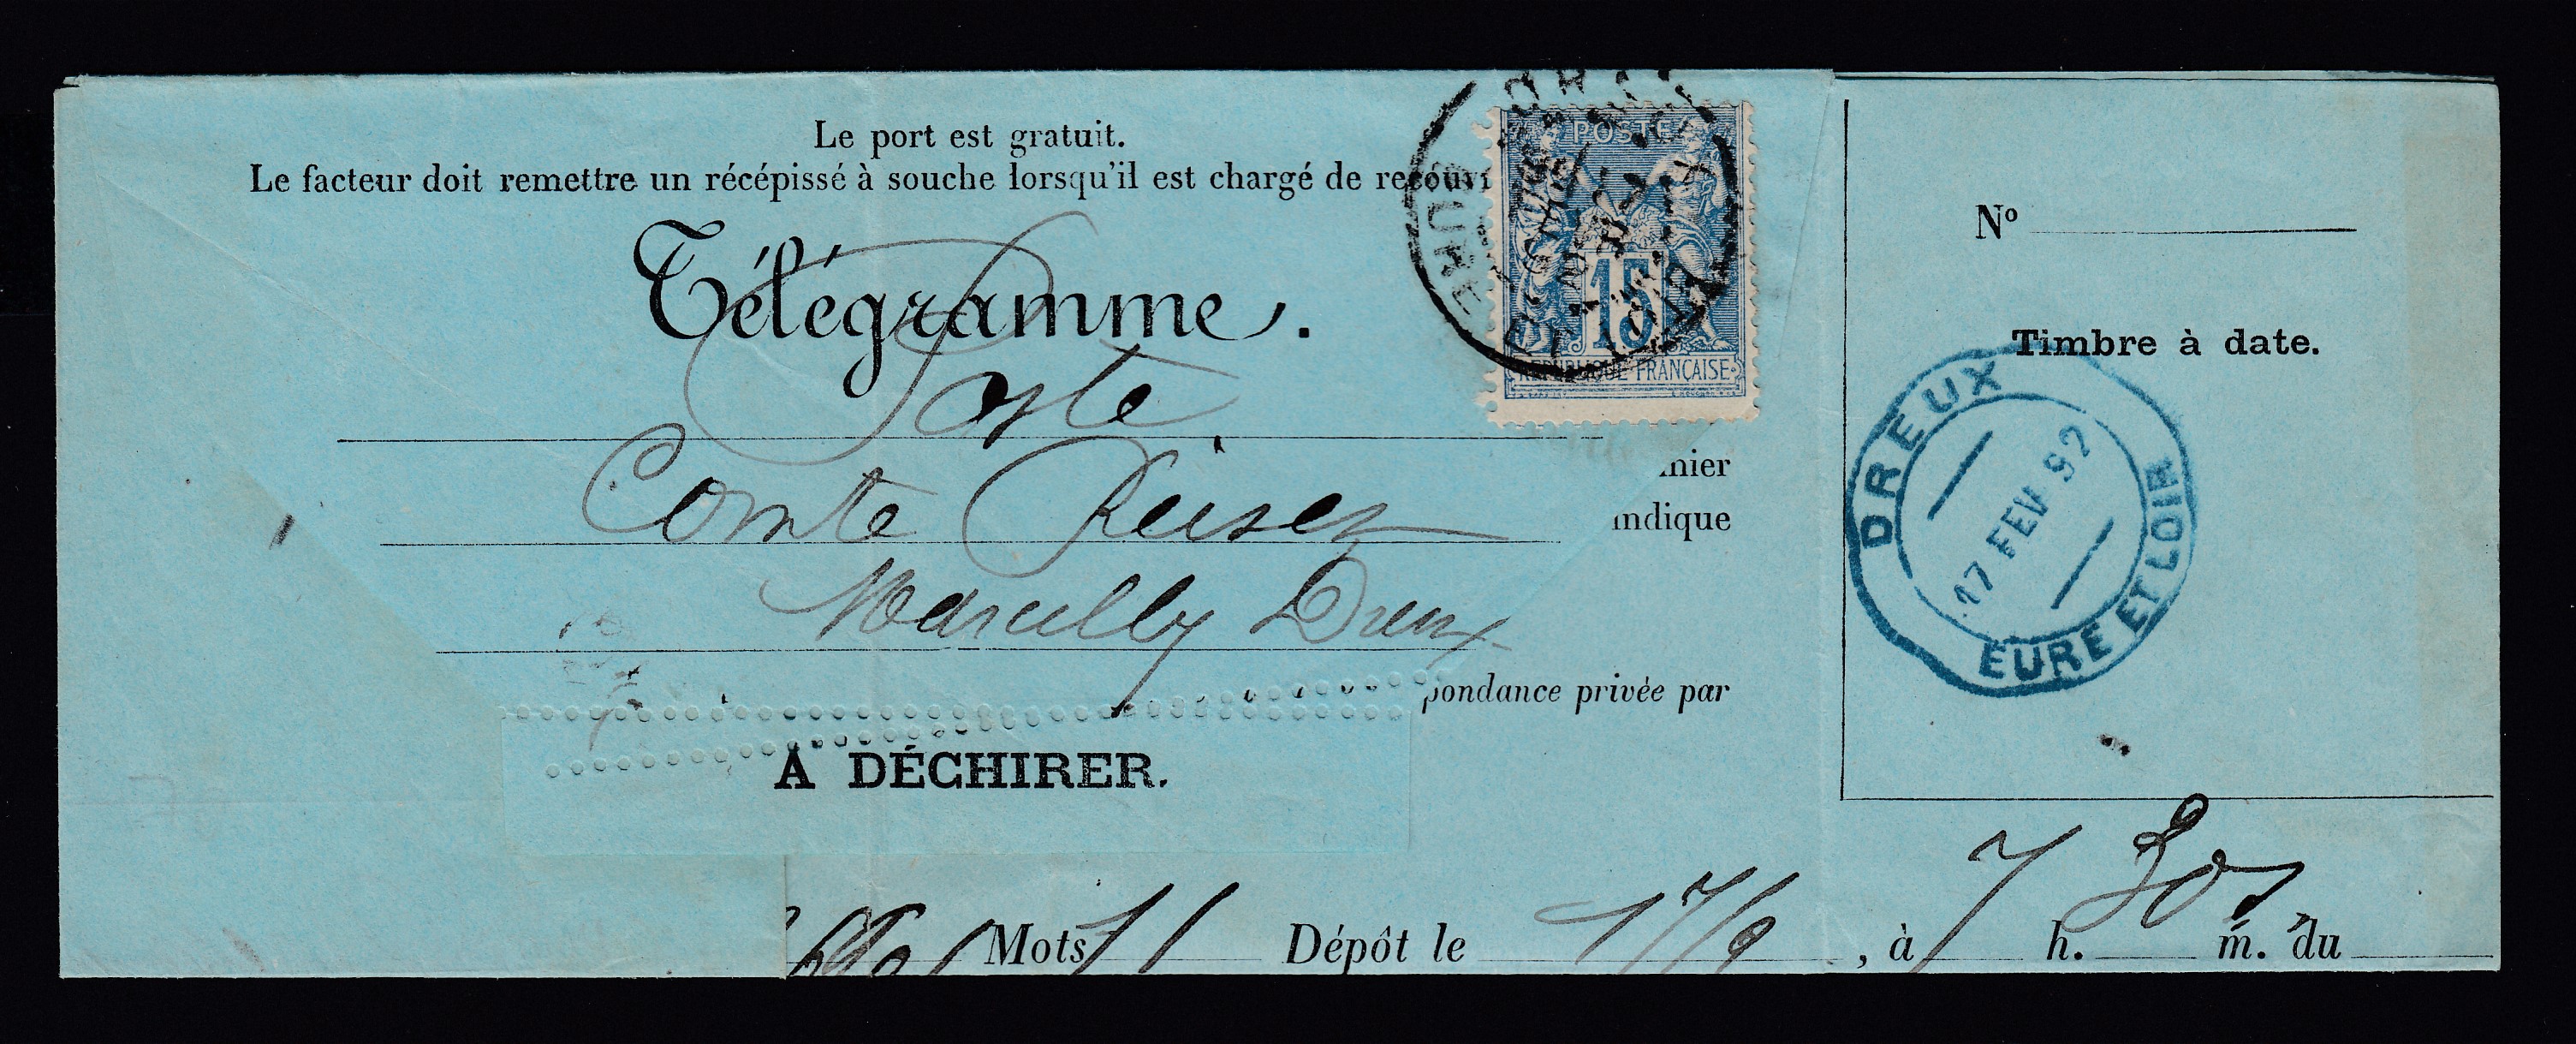 Le port est gratuit.
Le facteur doit remettre un récépissé à souche lorsqu'il est chargé de recouvr
Télégramme.
Poste
Comte Reiset
Marcilly Dreux
POSTE
15
REPUBLIQUE FRANÇAISE
EURE
nier
indique
pondance privée par
A DÉCHIRER.
Mots 11 Dépôt le 17/2, à 7 h. 30 m. du
Nº
Timbre à date.
DREUX
17 FEV 92
EURE ET LOIR